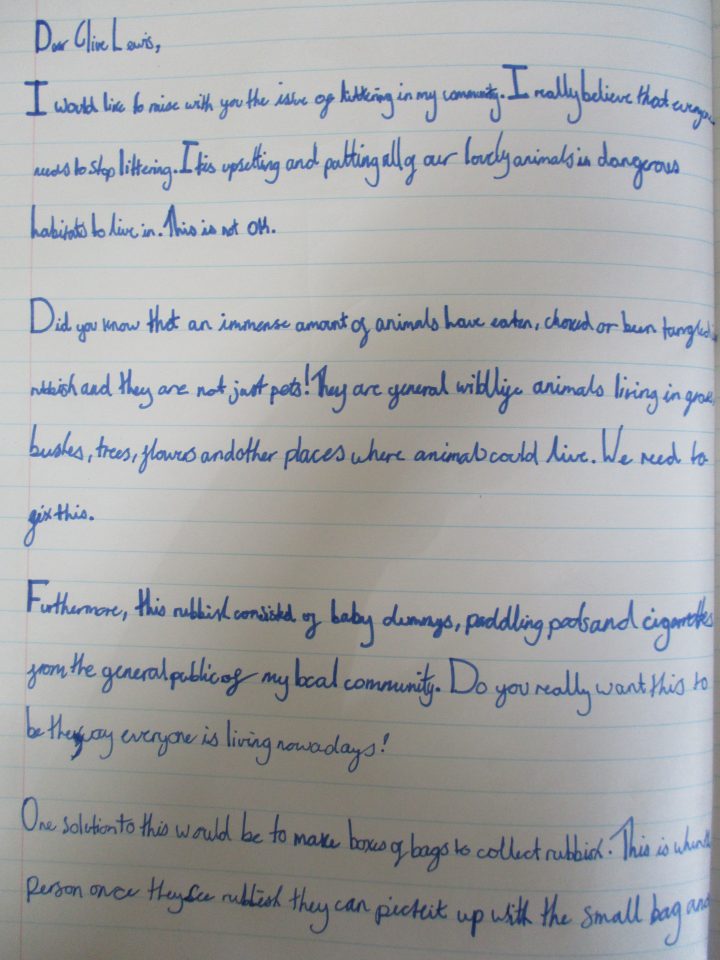 Dear Clive Lewis,
I would like to raise with you the issue of littering in my community. I really believe that everyone
needs to stop littering. It is upsetting and putting all of our lovely animals in dangerous
habitats to live in. This is not OK.
Did you know that an immense amount of animals have eaten, choked or been tangled
rubbish and they are not just pets! They are general wildlife animals living in
bushes, trees, flowers and other places where animals could live. We need to
fix this.
Furthermore, this rubbish consisted of baby dummys, paddling pools and cigarettes
from the general public of my local community. Do you really want this to
be the way everyone is living nowadays!
One solution to this would be to make boxes of bags to collect rubbish. This is
person once they see rubbish they can pick it up with the small bag and